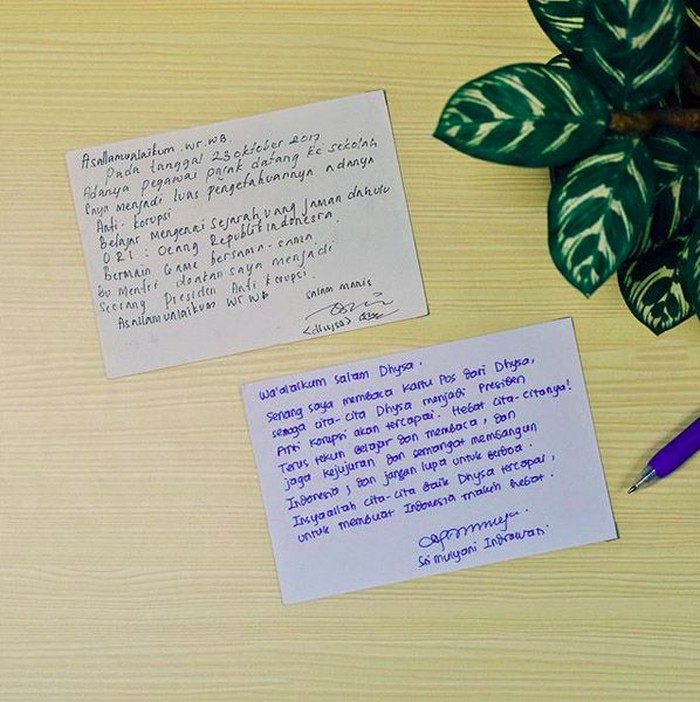 Asallamualaikum .wr.WB.
Pada tanggal 23 oktober 2017
Adanya pegawai pajak datang ke sekolah
Saya menjadi luas pengetahuannya adanya
Anti-korupsi
Belajar Mengenai Sejarah uang Jaman dahulu
ORI : Oeang Republik Indonesia.
Bermain Game bersama-sama
Bu Mentri doakan saya menjadi
Seorang Presiden Anti Korupsi.
Asallamualaikum Wr WB
salam manis
<dhysa>
Wa'alaikum salam Dhysa.
Senang saya membaca kartu Pos dari Dhysa,
semoga cita-cita Dhysa menjadi Presiden
Anti Korupsi akan tercapai. Hebat cita-citanya!
Terus tekun Belajar dan membaca, dan
jaga kejujuran dan semangat membangun
Indonesia, dan jangan lupa untuk Berdoa.
Insyaallah cita-cita Baik Dhysa tercapai,
untuk membuat Indonesia makin hebat.
Sri Mulyani Indrawati